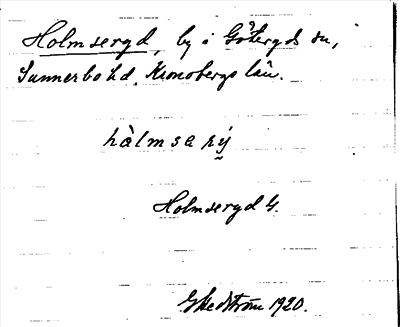 Holmseryd, by i Göteryds sn,
Sunnerbo hd, Kronobergs län.
hàlmsarý
Holmseryd 4.
G Hedström 1920.